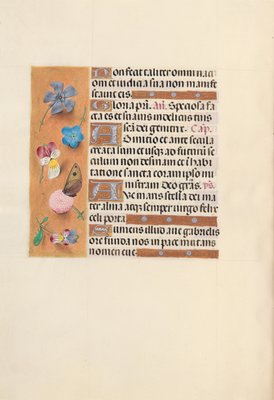 Non fecit taliter omni nati
oni et iudicia sua non manife
stauit eis.
Gloria pri. añ. Speciosa fa
cta es et suauis in deliciis tuis
scã dei genitrix. Cap.
Ab initio et ante secula
creata sum et usq; ad futurũ se
culum non desinam et i habi
tatione sancta coram ipso mi
nistraui Deo grãs. ys.
Aue maris stella dei ma
ter alma atq; semper uirgo felix
celi porta
Sumens illud aue gabrielis
ore funda nos in pace mutans
nomen eue